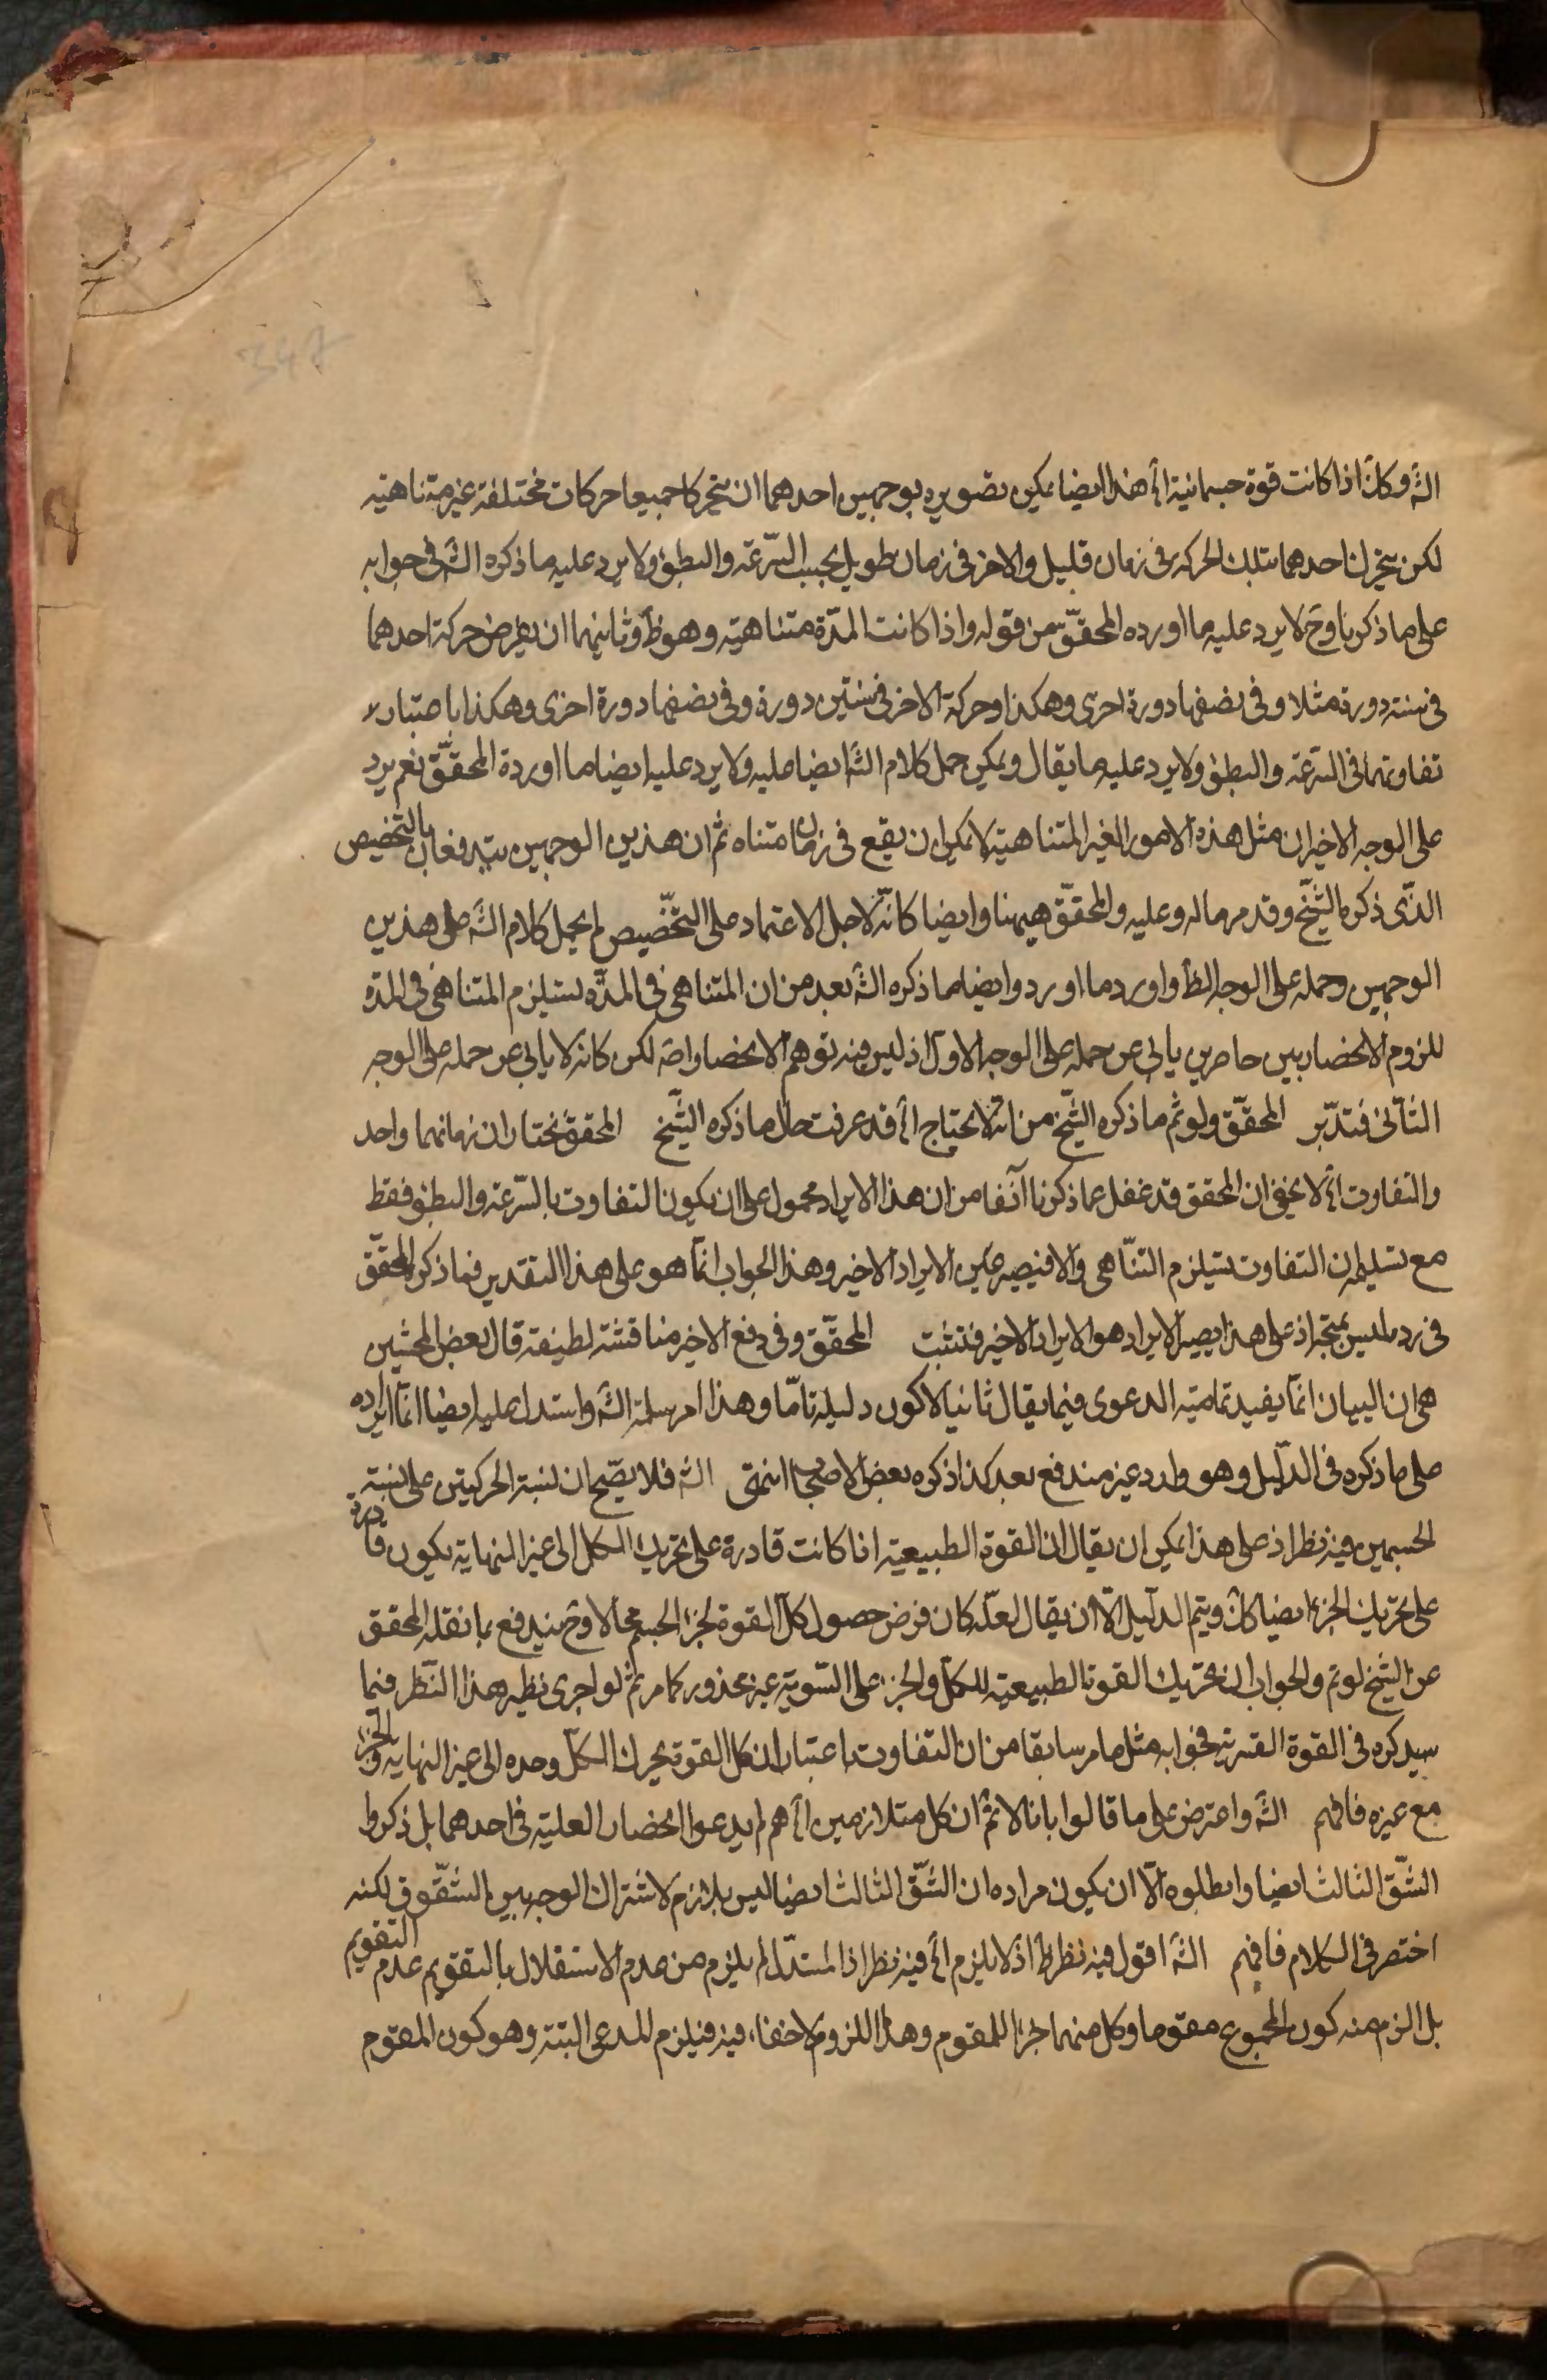 الشَ وكلَ اذا كانت قوة جسمانية الخ هذا ايضا يمكن تصويره بوجهين احدهما ان يتحركا جميعا حركات مختلفة غير متناهيه
لكن يتحرك احدهما بتلك الحركة فى زمان قليل والاخر فى زمان طويل بحسب السّرعة والبطؤ ولا يرد عليه ما ذكره الشَ فى جوابه
على ما ذكرنا وحَ لا يرد عليه ما اورده المحقّق من قوله واذا كانت المدّة متناهيه وهو ظَ وثانيهما ان يفرض حركة احدهما
فى سنته دورة مثلا وفى نصفها دورة اخرى وهكذا وحركة الاخر فى سنتين دورة وفى نصفها دورة اخرى وهكذا باعتبار
تفاوتهما فى السّرعة والبطؤ ولا يرد عليه ما يقال ويمكن حمل كلام الشَ ايضا عليه ولا يرد عليه ايضا ما اورده المحقّق نعم يرد
على الوجه الاخير ان مثل هذه الامور الغير المتناهية لا يمكن ان يقع فى زمان متناه ثم ان هذين الوجهين يندفعان بالتخصيص
الذّى ذكره الشّيخ وقد مر ما له وعليه والمحقّق هيهنا وايضا كانّه لاجل الاعتماد على التخّصيص لم يحمل كلام الشَ على هذين
الوجهين وحمله على الوجه الظَ واورد ما اورد وايضا ما ذكره الشَ بعد من ان المتناهى فى المدّة يستلزم المتناهى فى المدّة
للزوم الانحصار بين حاصرين يابى عن حمله على الوجه الاول اذ ليس فيه توهم الانحصار اصَ لكن كانه لا يابى عن حمله على الوجه
الثّانى فتدبّر المحقّق ولو تم ما ذكره الشّيخ من انه لا يحتاج الخ قد عرفت حال ما ذكره الشّيخ المحقق نختار ان زمانهما واحد
والتفاوت الخ لا يخفى ان المحقق قد غفل عما ذكرنا آنفا من ان هذا الايراد محمول على ان يكون التفاوت بالسّرعة والبطؤ فقط
مع تسليم ان التفاوت يستلزم التنّاهى والا فيصير عين الايراد الاخير وهذا الجواب انّما هو على هذا التقدير فما ذكره المحقّق
فى رده ليس بمتجه اذ على هذا يصير الايراد هو الايراد الاخير فتثبت المحقّق وفى دفع الاخير مناقشة لطيفة قال بعض المحشّين
هى ان البيان انّما يفيد تمامية الدعوى فيما يقال ثانيا لا كون دليله تامّا وهذا امر سلمه الشَ واستدل عليه ايضا انّما ايراده
على ما ذكره فى الدّليل وهو وارد غير مندفع بعد كذا ذكره بعض الاصحاب انتهى الشَ فلا يصّح ان نسبة الحركتين على نسبة
الجسمين فيه نظر اذ على هذا يمكن ان يقال ان القوة الطبيعية اذا كانت قادرة على تحريك الكل الى غير النهاية يكون قادرة
على تحريك الجزء ايضا كذلك ويتم الدّليل الّا ان يقال لعلّه كان فرض حصول كلّ القوة لجزء الجسم محالا وحَ يندفع بما نقله المحقق
عن الشّيخ لو تم والجواب ان تحريك القوة الطبيعية للكلّ والجزء على السّوية غير محذور كما مر ثم لو اجرى نظير هذا النّظر فيما
سيذكره فى القوة القسرية فجوابه مثل ما مر سابقا من ان التفاوت باعتبار ان كل القوة يحرك الكلّ وحده الى غير النهاية والجزء
مع غيره فافهم الشَ واعترض على ما قالوا بانا لا نمَ ان كل متلازمين الخ هم لم يدعوا انحصار العلية فى احدهما بل ذكروا
الشّق الثالث ايضا وابطلوه الّا ان يكون مراده ان الشّق الثالث ايضا ليس بلازم لاشتراك الوجهين الشقّوق لكنه
اختصر فى الكلام فافهم الشَ اقول فيه نظر اذ لا يلزم الخ فيه نظر اذ المستدّل لم يلزم من عدم الاستقلال بالتقويم عدم التقويم
بل الزم منه كون المجموع مقوما وكل منهما جزءا للمقوم وهذا اللزوم لا خفاء فيه فيلزم المدعى البتة وهو كون المقوم